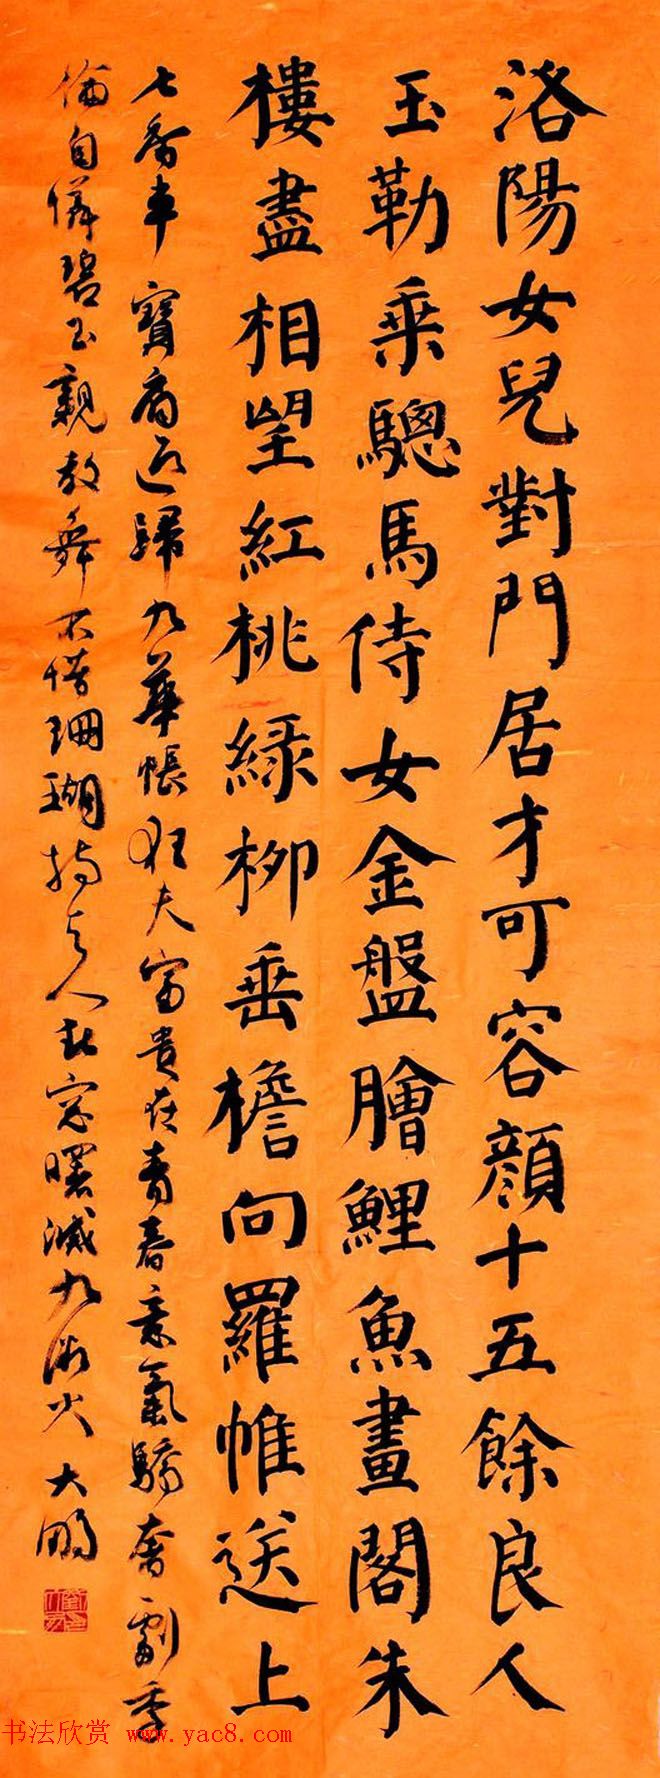 洛陽女兒對門居才可容顔十五餘良人
玉勒乗驄馬侍女金盤膾鯉魚畫閣朱
樓盡相望紅桃緑柳垂檐向羅帷送上
七香車寶扇迎歸九華帳狂夫富貴在青春意氣驕奢劇季
倫自憐碧玉親教舞不惜珊瑚持与人春窓曙滅九微火 大鵬
书法欣赏 www.yac8.com